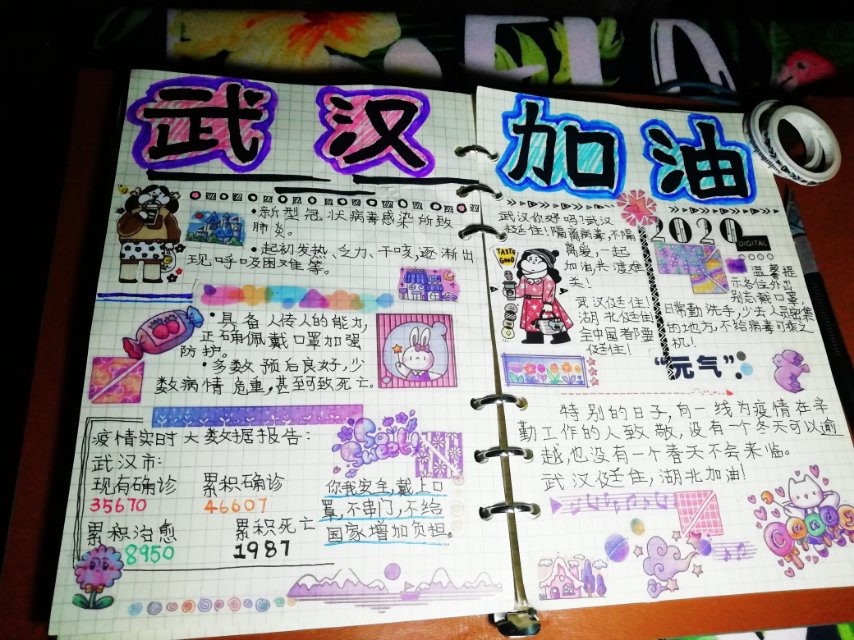 武汉
加油
•新型冠状病毒感染所致
肺炎。
•起初发热、乏力、干咳,逐渐出
现呼吸困难等。
•具备人传人的能力,
正确佩戴口罩加强
防护。
•多数预后良好,少
数病情危重,甚至可致死亡。
疫情实时大数据报告:
武汉市:
现有确诊
累积确诊
35670
46607
累积治愈
累积死亡
8950
1987
你我安全,戴上口
罩,不串门,不给
国家增加负担。
武汉你好吗?武汉
挺住!隔离病毒,不隔
离爱,一起
加油共渡难
关!
TASTE
GOOD
武汉挺住!
湖北挺住
全中国都要
挺住!
2020
DIGITAL
温馨提
示各位外出
别忘戴口罩,
日常勤洗手,少去人员密集
的地方,不给病毒可乘之
机!
“元气”
特别的日子,向一线为疫情在辛
勤工作的人致敬,没有一个冬天可以逾
越,也没有一个春天不会来临。
武汉挺住,湖北加油!